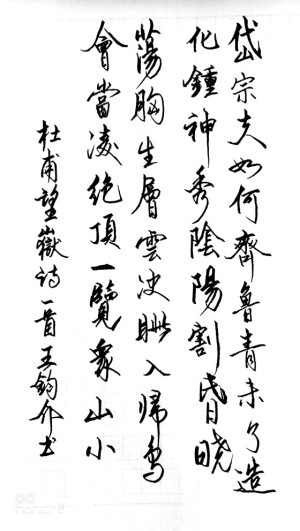 岱宗夫如何齊魯青未了造
化鍾神秀陰陽割昏曉
蕩胸生層雲決眦入歸鳥
會當凌絕頂一覽衆山小
杜甫望嶽詩一首王鈞介书
honor 8